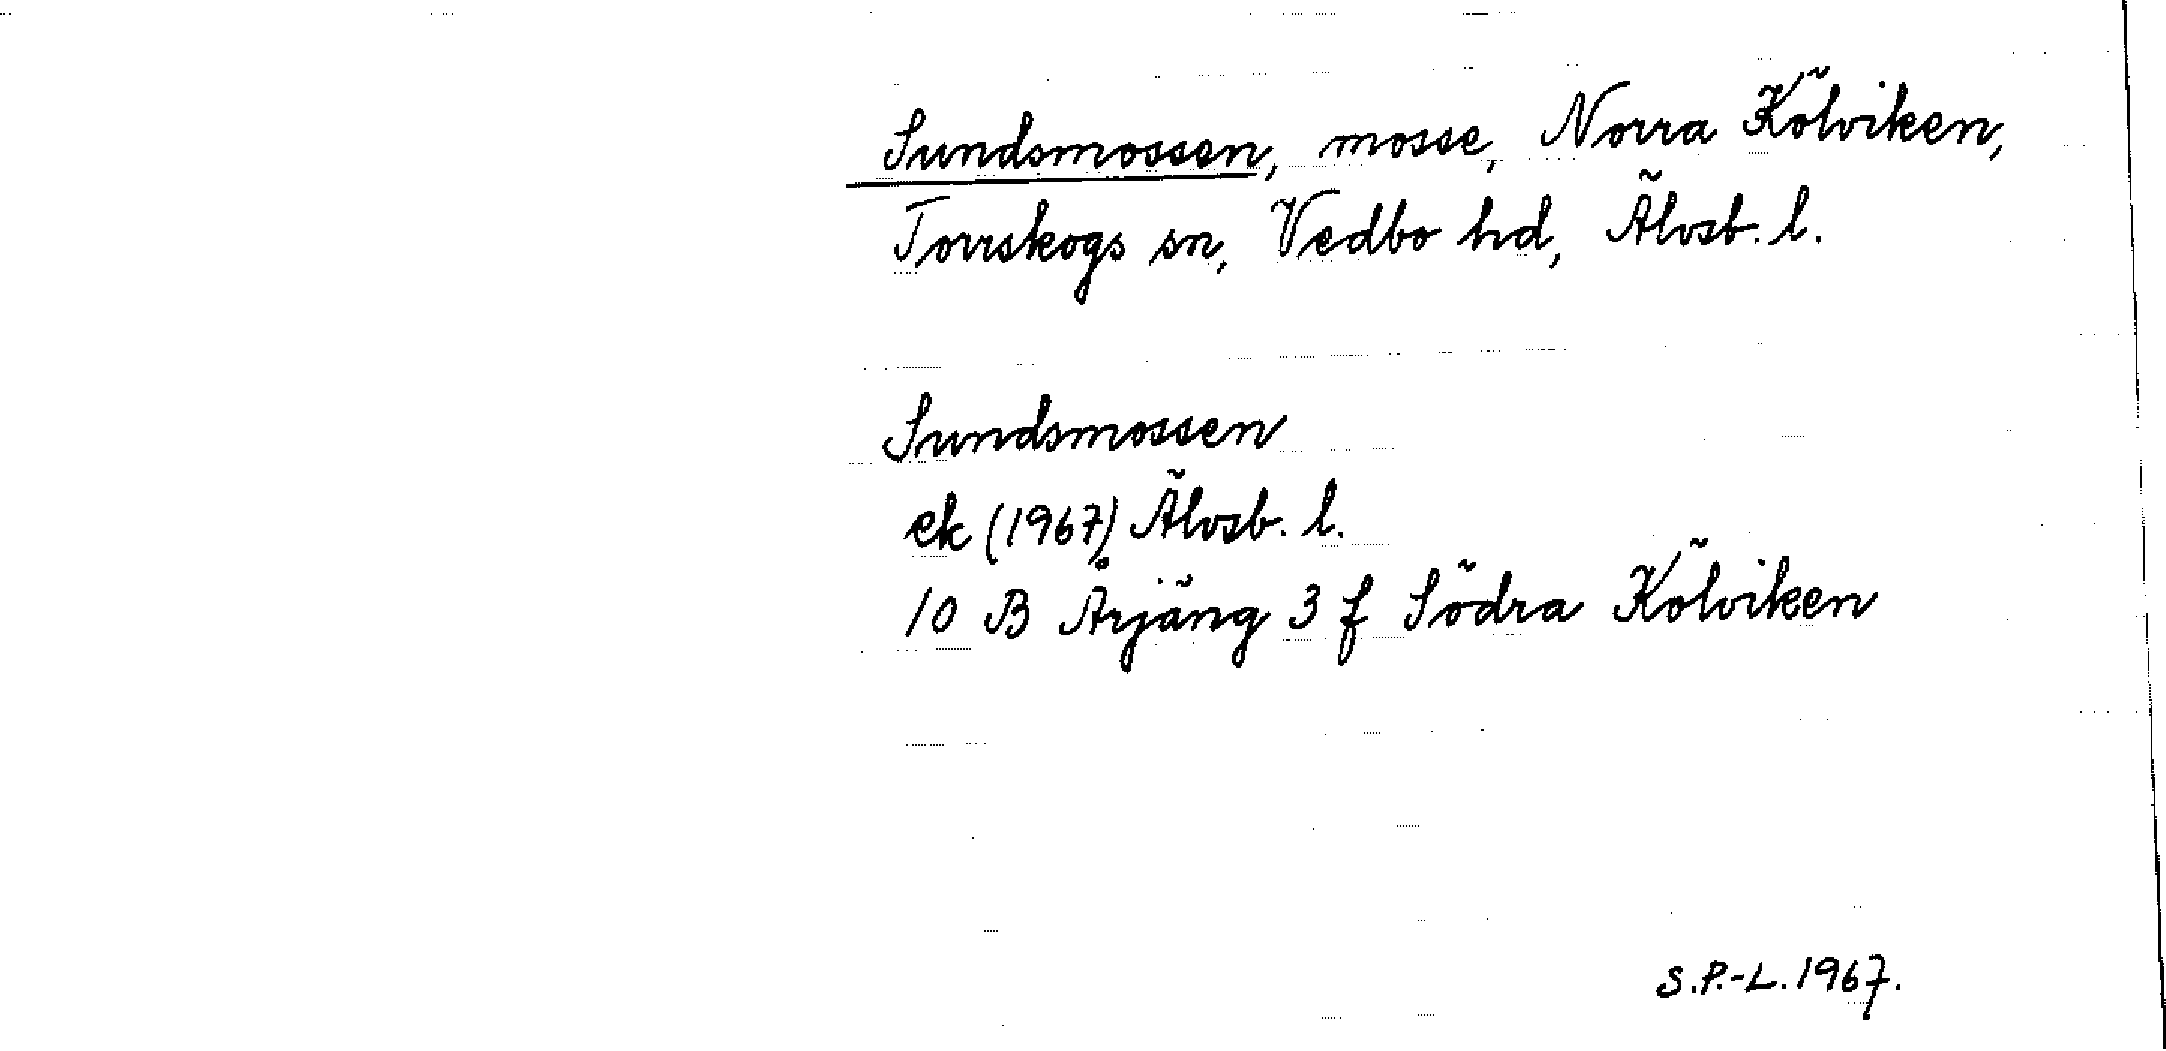 Sundsmossen, mosse, Norra Kölviken,
Torrskogs sn, Vedbo hd, Älvsb. l.
Sundsmossen
ek (1967) Älvsb. l.
10 B Årjäng 3 f Södra Kölviken
S.P.-L. 1967.